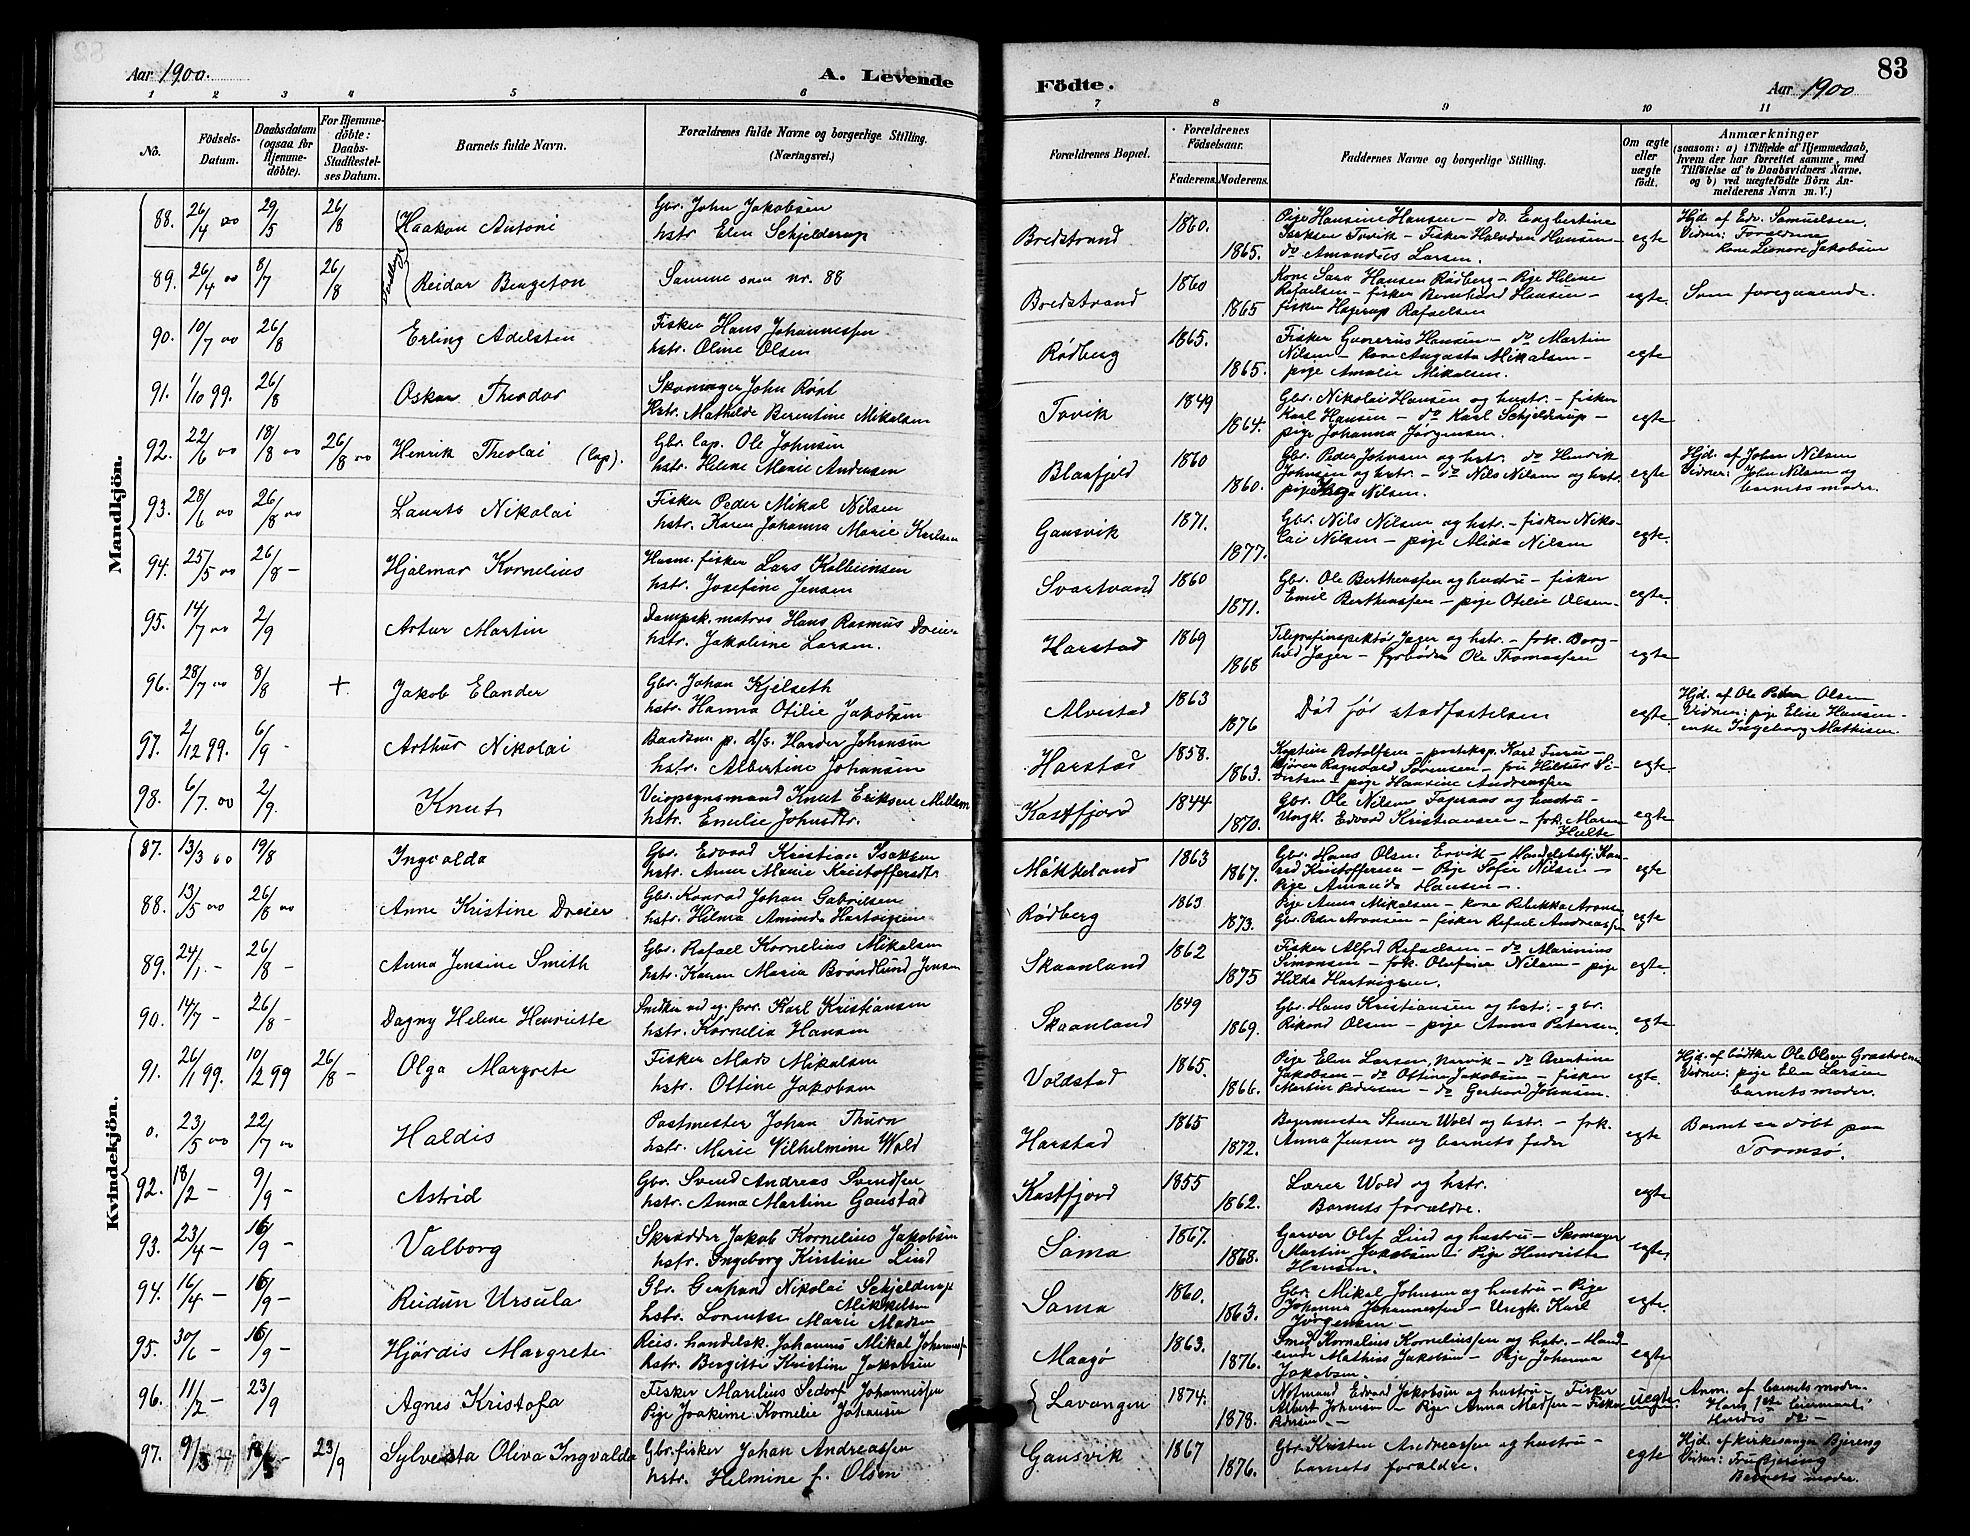 Aar 1900.
A. Levende
Födte.
Aar 1900
83
1 2 3 4 5 6 7 8 9 10 11
No.
Födsels-Datum.
Daabsdatum (ogsaa for Hjemme-döbte).
For Hjemme-döbte: Daabs-Stadfæstel-ses Datum.
Barnets fulde Navn.
Forældrenes fulde Navne og borgerlige Stilling.
(Næringsvei.)
Forældrenes Bopæl.
Forældrenes Födselsaar.
Faderens. Moderens.
Faddernes Navne og borgerlige Stilling.
Om ægte eller uægte födt.
Anmærkninger
(saasom: a) i Tilfælde af Hjemmedaab, hvem der har forrettet samme, med Tilföielse af to Daabsvidners Navne, og b) ved uægtefödte Börn An-melderens Navn m. V.)
Mandkjön.
88. 26/4 00 29/5 26/8 Haakon Antoni
Gbr. John Jakobsen
hstr. Elen Schjelderup
Bredstrand 1860. 1865.
Pige Hansine Hansen – do. Engbertine
Isaksen Tovik – Fisker Halvdan Hansen –
do Amandus Larsen.
egte
Hjd. af Edv. Samuelsen.
Vidner: Forældrene
Kone Leonore Jakobsen
89. 26/4 00 8/7 26/8 Reidar Bergeton
Samme som nr. 88
Bredstrand 1860 1865
Kone Sara Hansen Rødberg – Pige Helene
Rafaelsen – fisker Bernhard Hansen –
fisker Hagerup Rafaelsen
egte. Som foregaaende.
90. 10/7 00 26/8 Erling Adelsten
Fisker Hans Johannessen
hstr. Oline Olsen
Rødberg 1865. 1865.
Fisker Gunerius Hansen – do Martin
Nilsen – kone Augusta Mikalsen –
pige Amalie Mikalsen.
egte
91. 1/10 99. 26/8 Oskar Theodor
Skomager John Røst
Hstr. Mathilde Berentine Mikalsen
Tovik 1849 1864.
Gbr. Nikolai Hansen og hustr. – fisker
Karl Hansen – do Karl Schjelderup –
pige Johanna Jørgensen.
egte
92. 22/6 00 18/8 00 26/8 00 Henrik Theolai (lap).
Gbr. lap. Ole Johnsen
hstr. Helene Marie Andersen
Blaafjeld 1860 1860.
Gbr. Peder Johnsen og hstr. do Henrik
Johnsen og hstr. – do Nils Nilsen og hstr.
pige Helga Nilsen.
egte
Hjd. af John Nilsen
Vidner: John Nilsen og
barnets moder.
93. 28/6 00 26/8 00 Laurits Nikolai
Fisker Peder Mikal Nilsen
hstr. Karen Johanna Marie Karlsen
Gansvik 1871. 1877.
Gbr. Nils Nilsen og hstr. – fisker Niko-
lai Nilsen – pige Alida Nilsen
egte.
94. 25/5 00 26/8 – Hjalmar Kornelius
Husm. fisker Lars Kolbeinsen
hstr. Josefine Jensen
Svartvand 1860 1871.
Gbr. Ole Bertheussen og hustru – fisker
Emil Bertheussen – pige Otilie Olsen
egte.
95. 14/7 00 2/9 Artur Martin
Dampsk. matros Hans Rasmus Dreier
hstr. Jakobine Larsen.
Harstad 1869 1868
Telegrafinspektør Jager og hstr. – frk. Borg-
hild Jager – fyrbøder Ole Thomassen
egte
96. 28/7 00 8/8 + Jakob Elander
Gbr. Johan Kjelseth
hstr. Hanna Otilie Jakobsen
Alvestad 1863 1876
Død før stadfæstelsen
egte
Hjd. af Ole Peder Olsen
Vidner: pige Elise Hansen –
enke Ingeborg Mathisen.
97. 2/12 99. 6/9 – Arthur Nikolai
Baadsm. p. d/s. Harder Johansen
hstr. Albertine Johansen
Harstad 1858. 1863.
Kaptein Rotolfsen – posteksp. Karl Furu –
Bjørn Ragnvald Sørensen – fru Hildur Si-
vertsen – pige Hansine Andreassen
egte.
98. 6/7. 00 2/9. Knut
Veiopsynsmand Knut Eriksen Mellem
hstr. Emelie Johnsdtr.
Kastfjord 1844 1870.
Gbr. Ole Nilsen Fageraas og hustru –
Ungk. Edvard Kristiansen – frk. Maren
Hulte
egte
Kvindekjön.
87. 13/3 00 19/8 Ingvalda
Gbr. Edvard Kristian Isaksen
hstr. Anne Marie Kristoffersdtr
Møkkeland 1863 1867.
Gbr. Hans Olsen Ervik – Handelsbetj. Kon-
rad Kristoffersen – Pige Sofie Nilsen –
Pige Amanda Hansen –.
egte
88. 13/5 00 26/8 00 Anne Kristine Dreier
Gbr. Konrad Johan Gabrielsen
hstr. Hilma Aminda Hartvigsen
Rødberg 1863 1873.
Pige Anna Mikalsen – kone Rebekka Aronsen
Gbr. Peder Aronsen – fisker Rafael Andreassen
egte
89. 24/1 – 26/8 – Anna Jensine Smith
Gbr. Rafael Kornelius Mikalsen
hstr. Karen Maria Brøndlund Jensen
Skaanland 1862 1875
Fisker Alfred Rafaelsen – do Marinius
Simonsen – frk. Olufine Nilsen – pige
Hilda Hartvigsen.
egte
90. 14/7 – 26/8 – Dagny Helene Henriette
Smed Karl Kristiansen
hstr. Kornelia Hansen
Skaanland 1849 1869.
Gbr. Hans Kristiansen og hstr. – gbr.
Rikard Olsen – pige Anna Petersen.
egte
91. 26/1 99. 10/2 99 26/8 – Olga Margrete
Fisker Mads Mikalsen
hstr. Ottine Jakobsen
Voldstad 1865. 1866.
Pige Elen Larsen, Narvik – do Arntine
Jakobsen – do Ottine Jakobsen – fisker
Martin Pedersen – do Gerhard Johnsen.
egte.
Hjd. af bødtker Ole Olsen Grasholmen
Vidner: pige Elen Larsen
barnets moder.
0. 23/5 00 22/7 00 Haldis
Postmester Johan Thurn
hstr. Marie Vilhelmine Wold
Harstad 1865 1872.
Bagermester Stener Wold og hstr. – frk.
Anna Jensen og barnets fader
egte
Barnet er døbt paa
Tromsø.
92. 18/2 – 9/9 – Astrid
Gbr. Svend Andreas Svendsen
hstr. Anna Martine Gaustad
Kastfjord 1855 1862.
Lærer Wold og hstr.
Barnets forældre.
egte
93. 23/4 – 16/9 – Valborg
Skrædder Jakob Kornelius Jakobsen
hstr. Ingeborg Kristine Lind
Sama 1867. 1868.
Garver Olaf Lind og hustru – Skomager
Martin Jakobsen – Pige Henriette
Hansen.
egte.
94. 16/4 – 16/9 – Reidun Ursula
Gbr. Gerhard Nikolai Schjelderup
Mikkelsen
hstr. Lorentse Marie Madsen
Sama 1860. 1863.
Gbr. Mikal Johnsen og hustru – Pige
Johanna Johannessen – Ungk. Karl
Jørgensen –
egte.
95. 30/6 – 16/9 – Hjördis Margrete
Reis. handelsk. Johannes Mikal Johannes-
hstr. Bergitte Kristine Jakobsen
Maagø 1863. 1876.
Smed Kornelius Korneliussen og hstr. – Hand-
lende Mathias Jakobsen – Pige Johanna
Jakobsen.
egte
96. 11/2 – 23/9 Agnes Kristofa
Fisker Marelius Sedorf Johannessen
Pige Joakime Kornelie Johansen
Lavangen 1874. 1878.
Notmand Edvard Jakobsen og hustru – Fisker
Albert Johnsen – Pige Anna Madsen – Fisker
Pedersen –
uegte.
Anm. af barnets moder.
Hans 1ste leiermaal
Hendes do –
97. 9/3 18/5 – 23/9 Sylvesta Oliva Ingvalda
Gbr. fisker Johan Andreassen
hstr. Helmine f. Olsen
Gansvik 1867 1876.
Gbr. Kristen Andreassen og hustru –
barnets forældre.
egte
Hjd. af kirkesanger Bjereng
Vidner: fru Bjereng
Barnets moder.